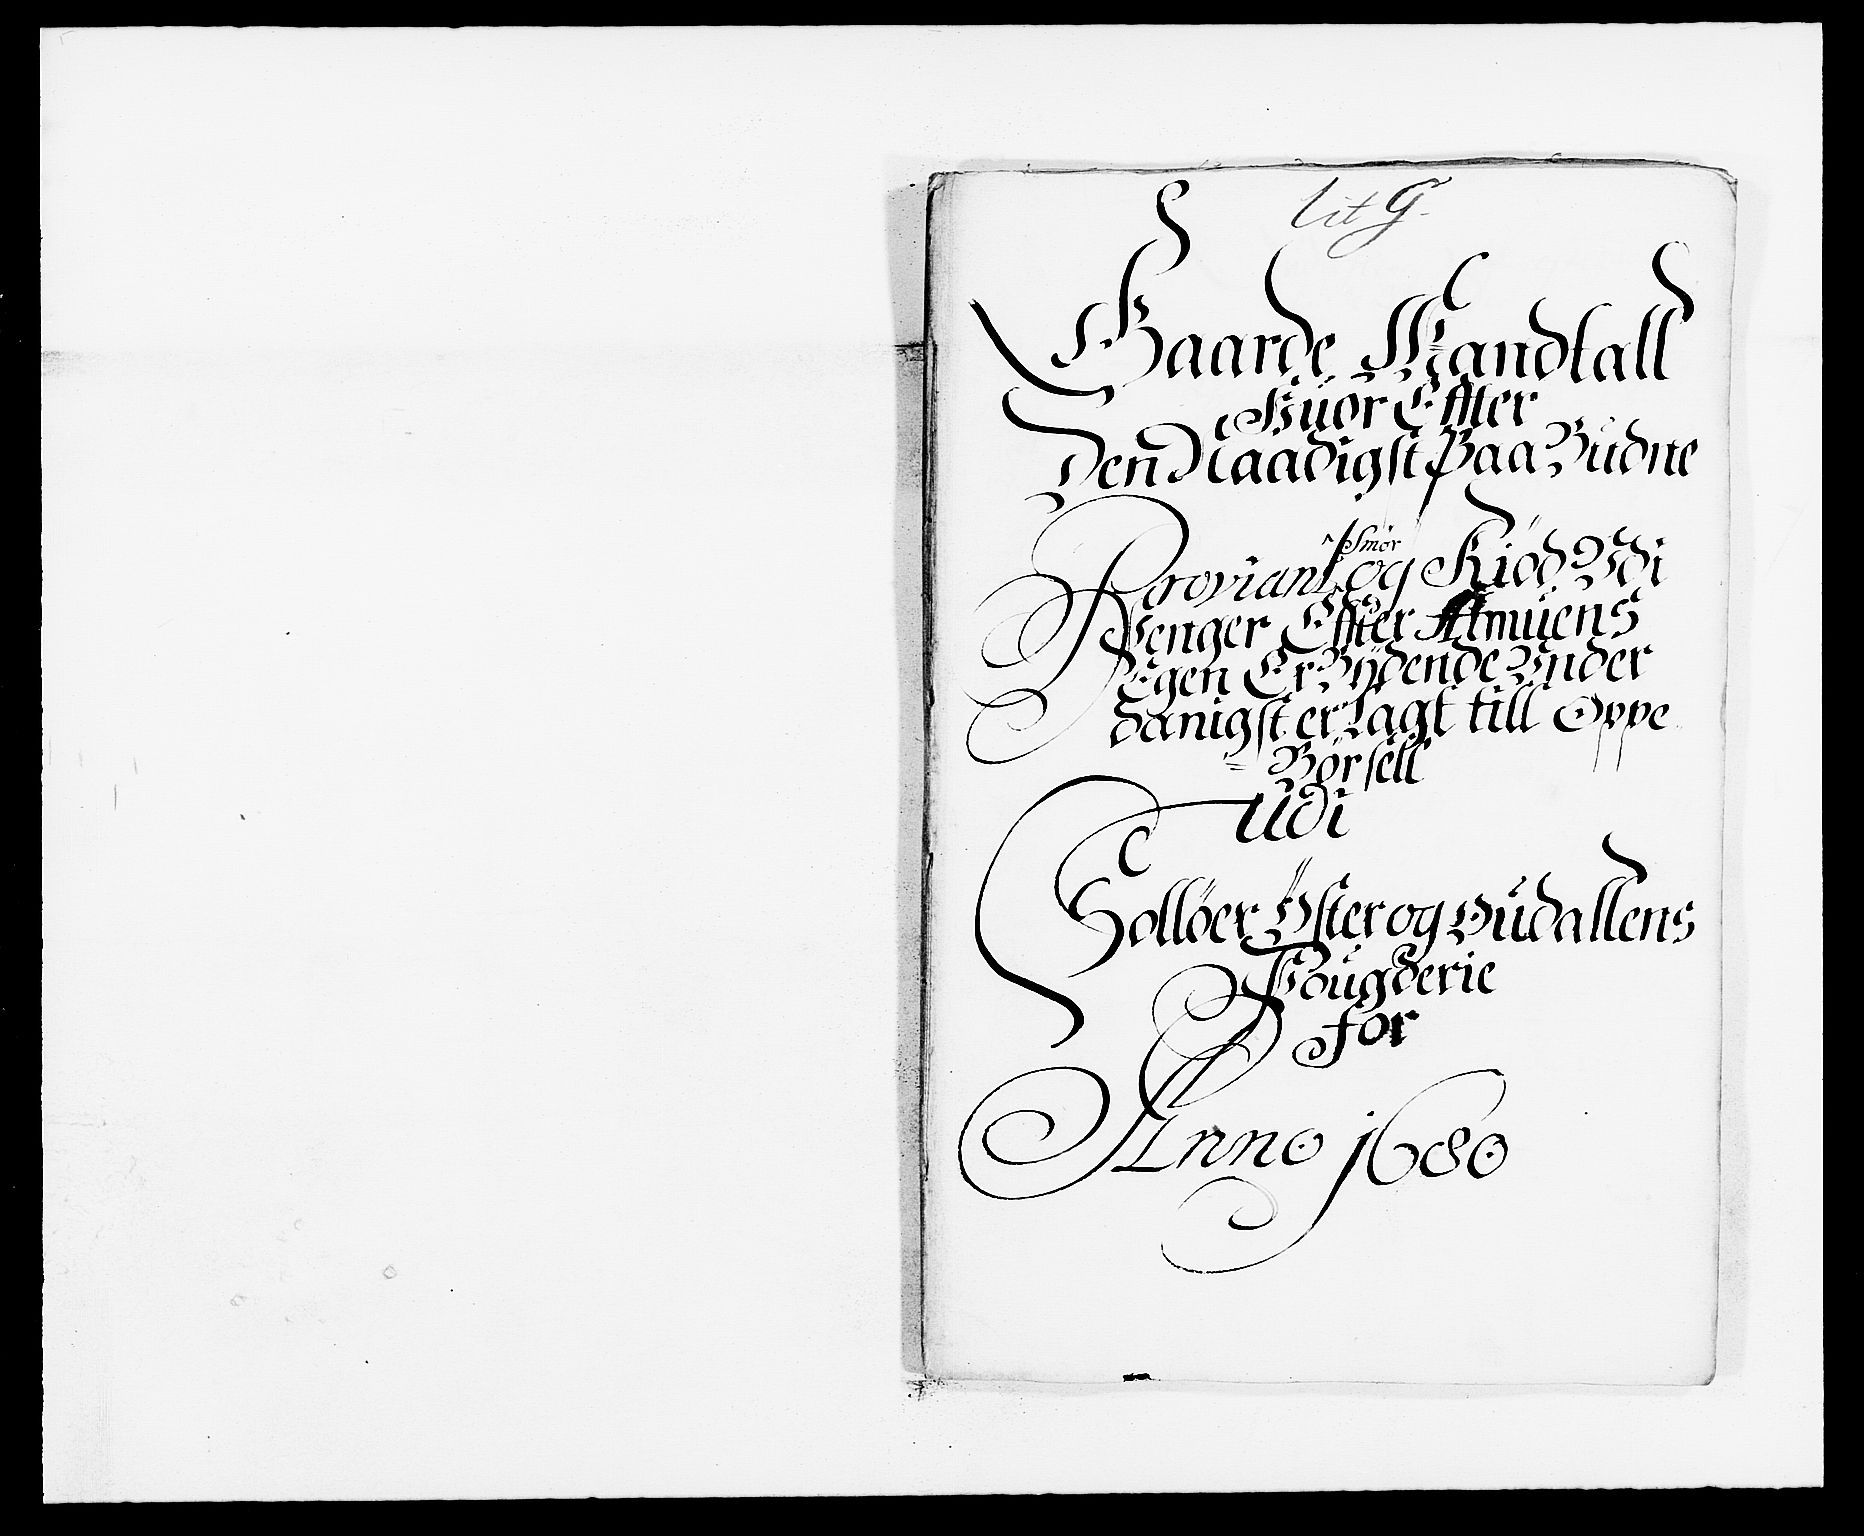 Lit G.
Gaarde Mandtall
Huor Effter
Den Naadigst Paa Budne
Proviant ^Smør og Kiød Vdi
Penger Effter Almuens
Egen Er Bÿdende Vnder
danigst er Lagt till Oppe
= Børsell
Udi
Solløer Øster og Oudallens
Fougderie
for
Anno 1680